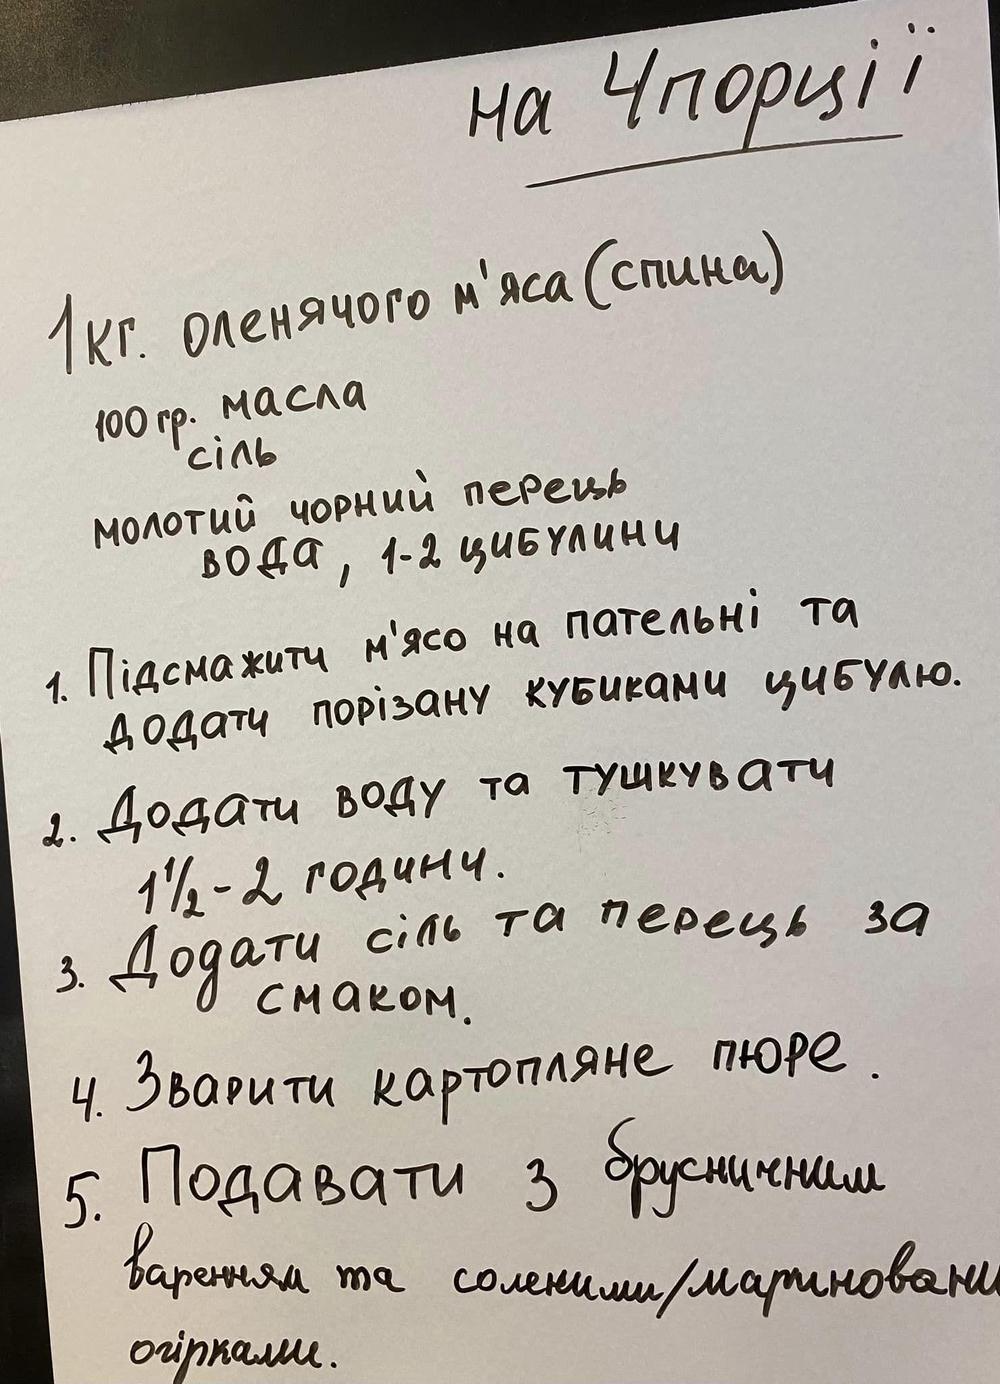 на 4 порції
1 кг. оленячого м'яса (спина)
100 гр. масла
сіль
молотий чорний перець
вода, 1-2 цибулини
1. Підсмажити м'ясо на пательні та
додати порізану кубиками цибулю.
2. Додати воду та тушкувати
1 1/2 - 2 години.
3. Додати сіль та перець за
смаком.
4. Зварити картопляне пюре.
5. Подавати з брусничним
варенням та соленими/мариновани
огірками.